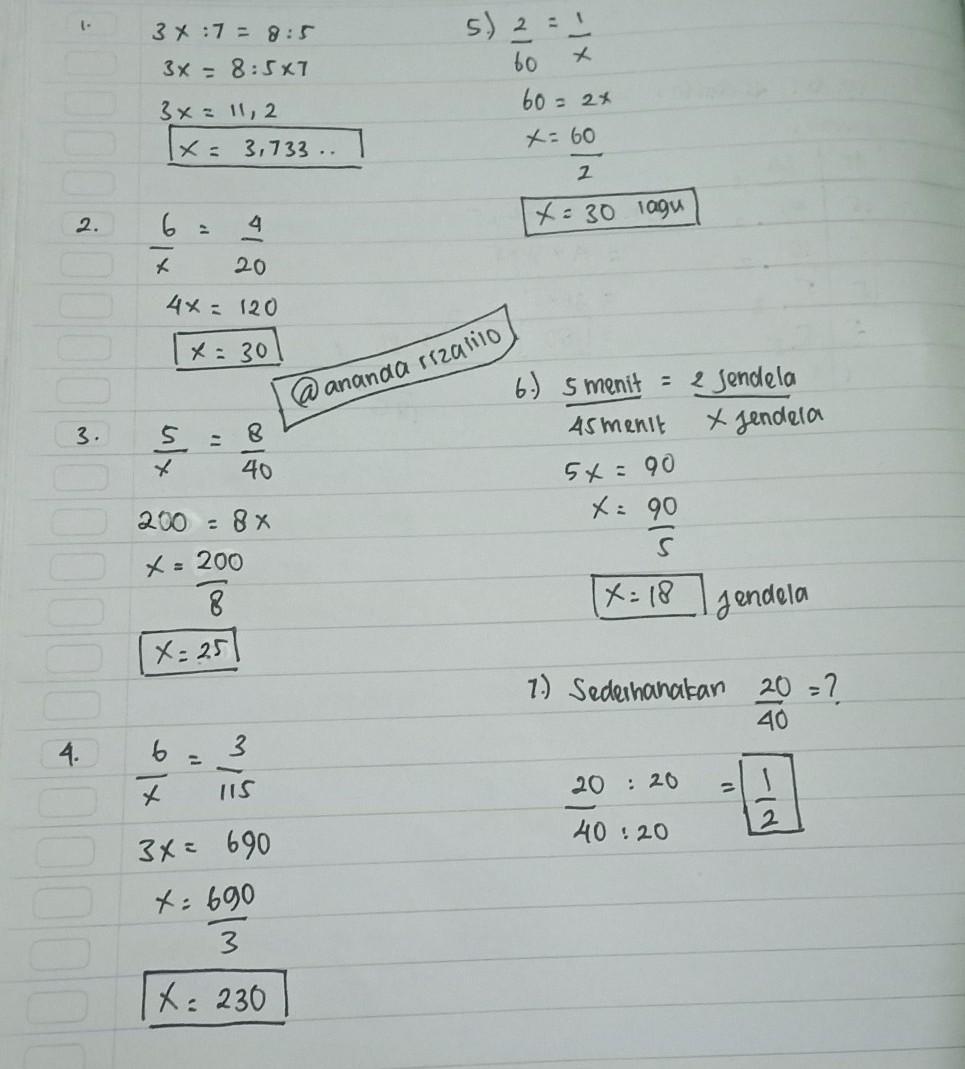 1. 3x : 7 = 8 : 5
3x = 8 : 5 x 7
3x = 11,2
x = 3,733 ..
2. 6/x = 4/20
4x = 120
x = 30
@ananda rizaliilo
3. 5/x = 8/40
200 = 8x
x = 200/8
x = 25
4. 6/x = 3/115
3x = 690
x = 690/3
x = 230
5.) 2/60 = 1/x
60 = 2x
x = 60/2
x = 30 lagu
6.) 5 menit/45 menit = 2 Jendela/x jendela
5x = 90
x = 90/5
x = 18 jendela
7.) Sederhanakan 20/40 = ?
20 : 20/40 : 20 = 1/2